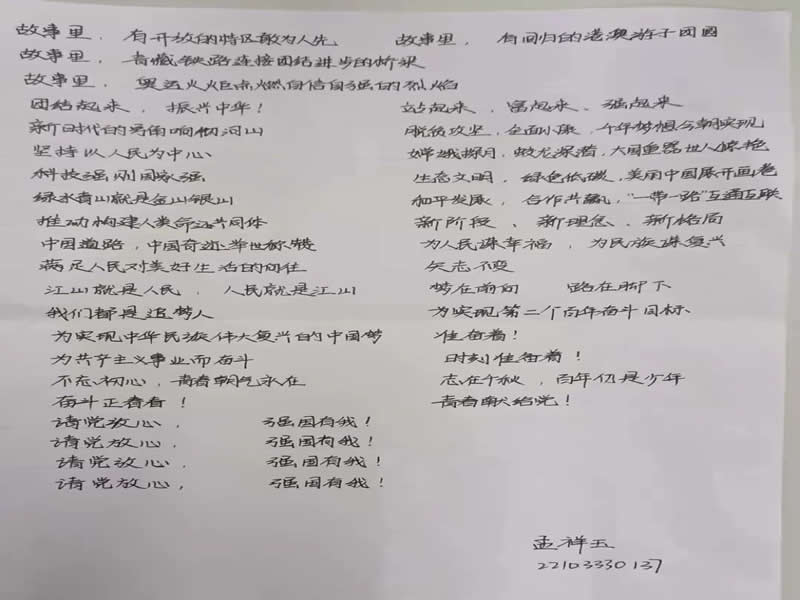 故事里，有开放的特区敢为人先 故事里，有回归的港澳游子团圆
故事里，青藏铁路连接团结进步的桥梁
故事里，奥运火炬点燃自信自强的烈焰
团结起来，振兴中华！ 站起来、富起来、强起来
新时代的号角响彻河山 脱贫攻坚，全面小康，千年梦想今朝实现
坚持以人民为中心 嫦娥探月，蛟龙深潜，大国重器世人惊艳
科技强则国家强 生态文明，绿色低碳，美丽中国展开画卷
绿水青山就是金山银山 和平发展，合作共赢，"一带一路"互通互联
推动构建人类命运共同体 新阶段、新理念、新格局
中国道路，中国奇迹举世称赞 为人民谋幸福，为民族谋复兴
满足人民对美好生活的向往 矢志不变
江山就是人民，人民就是江山 梦在前面 路在脚下
我们都是追梦人 为实现第二个百年奋斗目标、
为实现中华民族伟大复兴的中国梦 准备着！
为共产主义事业而奋斗 时刻准备着！
不忘初心，青春朝气永在 志在千秋，百年仍是少年
奋斗正青春！ 青春献给党！
请党放心， 强国有我！
请党放心， 强国有我！
请党放心， 强国有我！
请党放心， 强国有我！
孟祥玉
22103330137